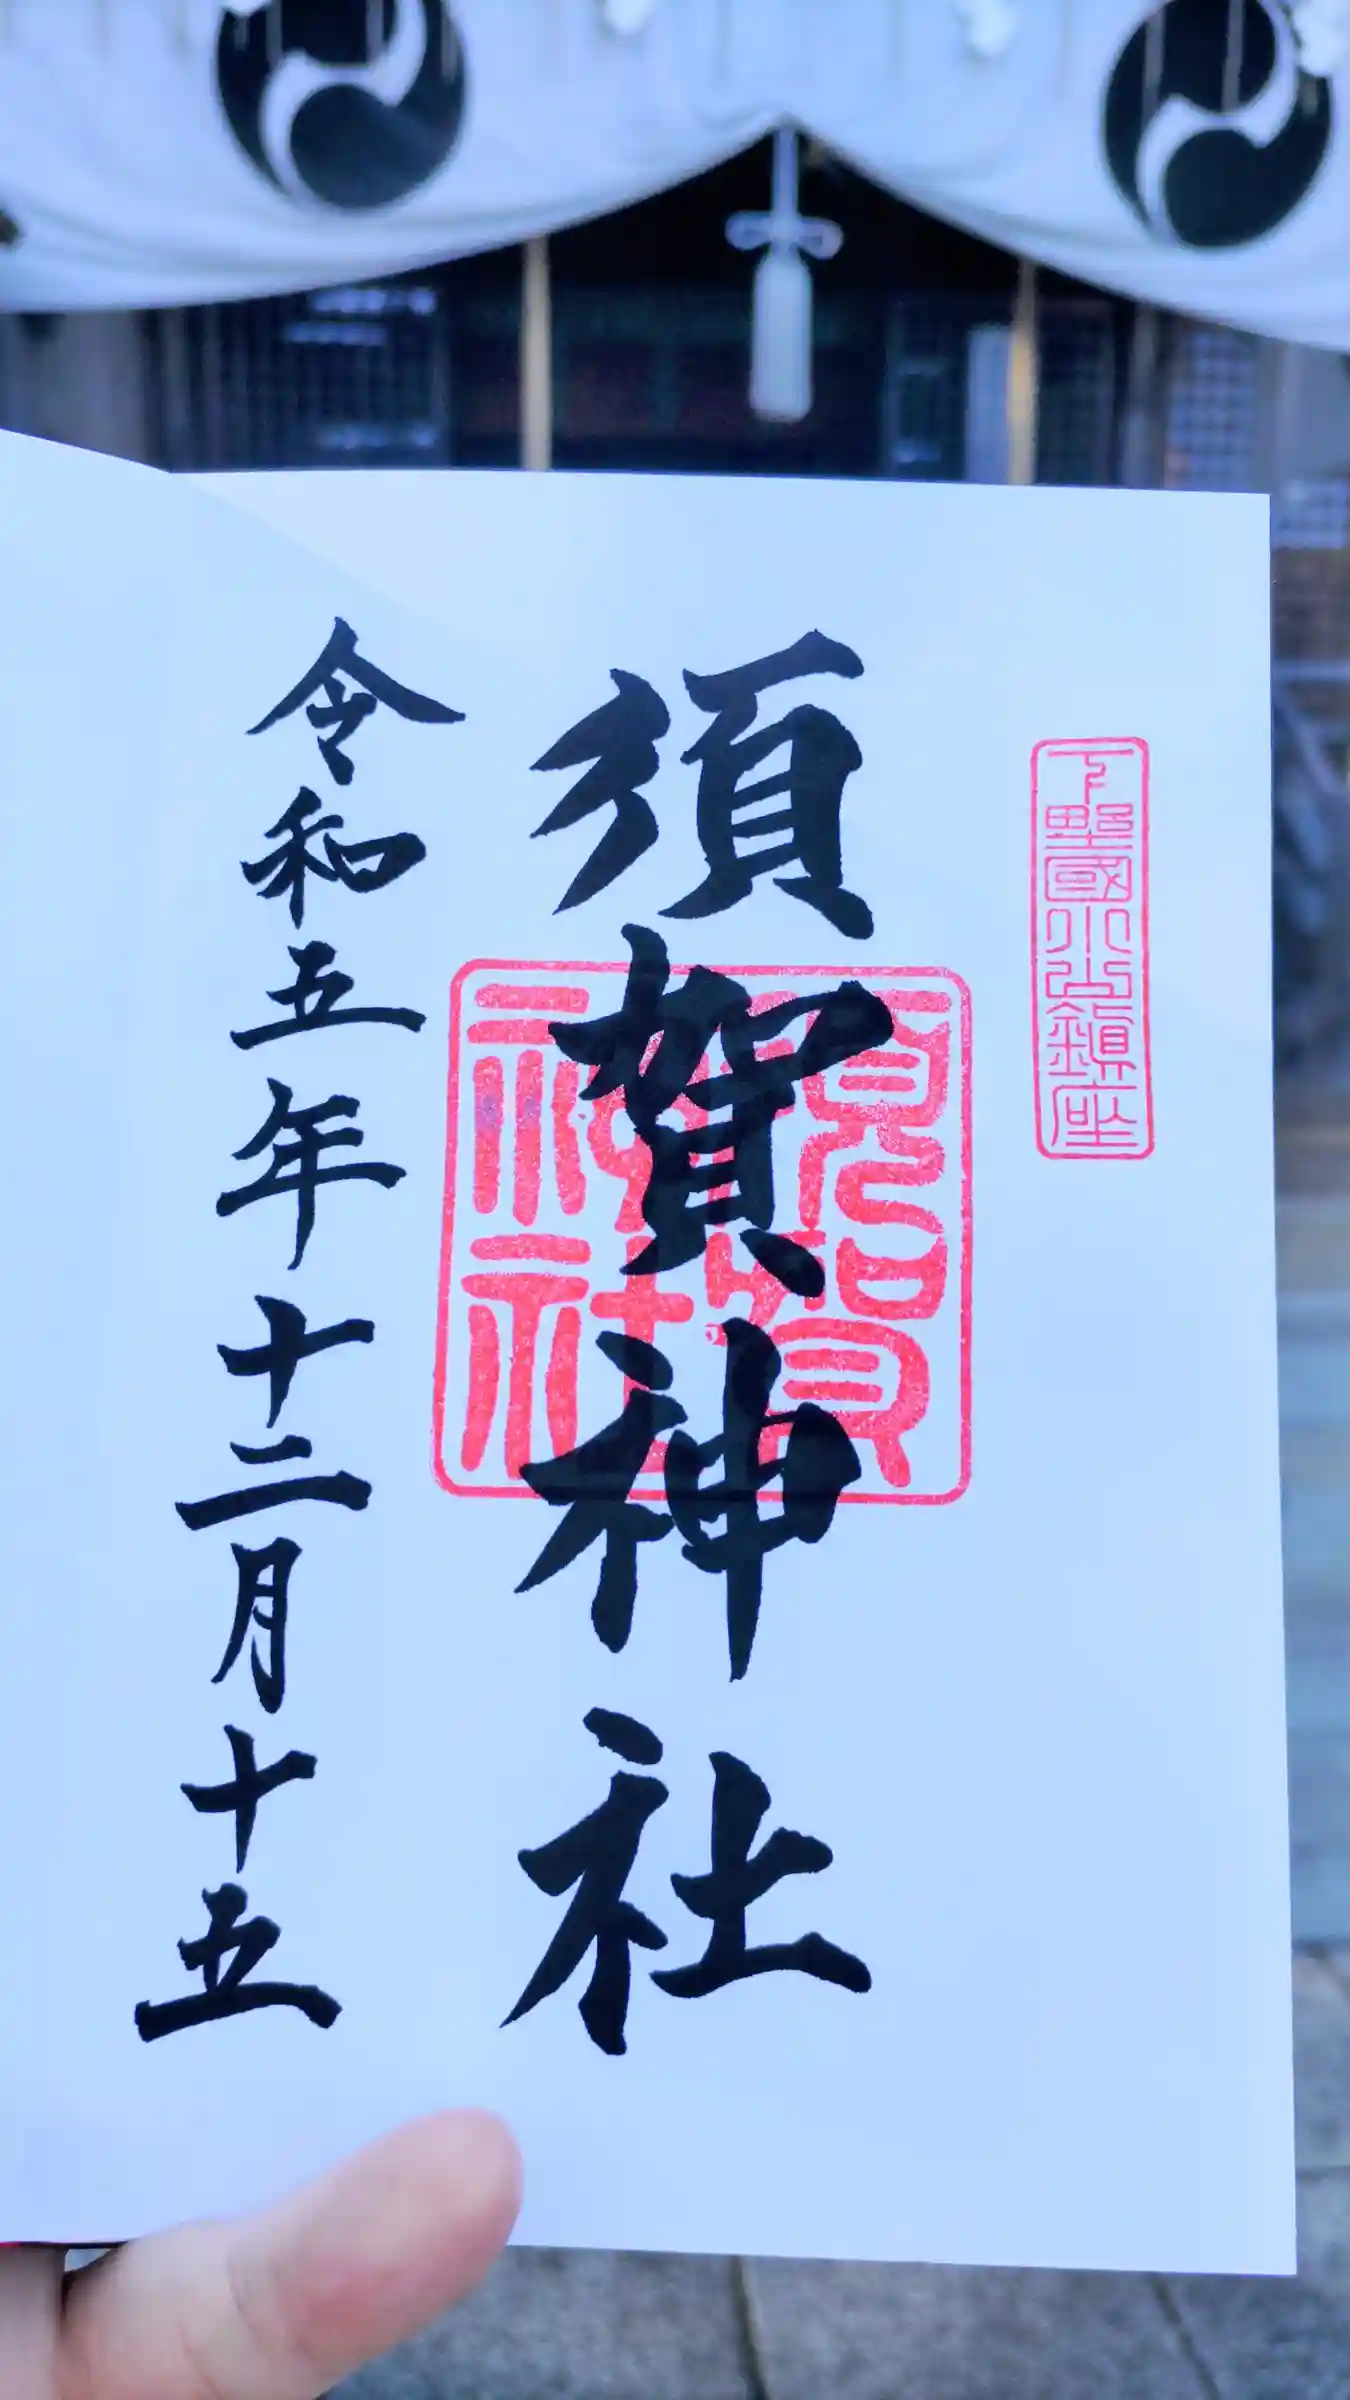 下野國小山鎮座
須賀神社
須賀神社
令和五年十二月十五